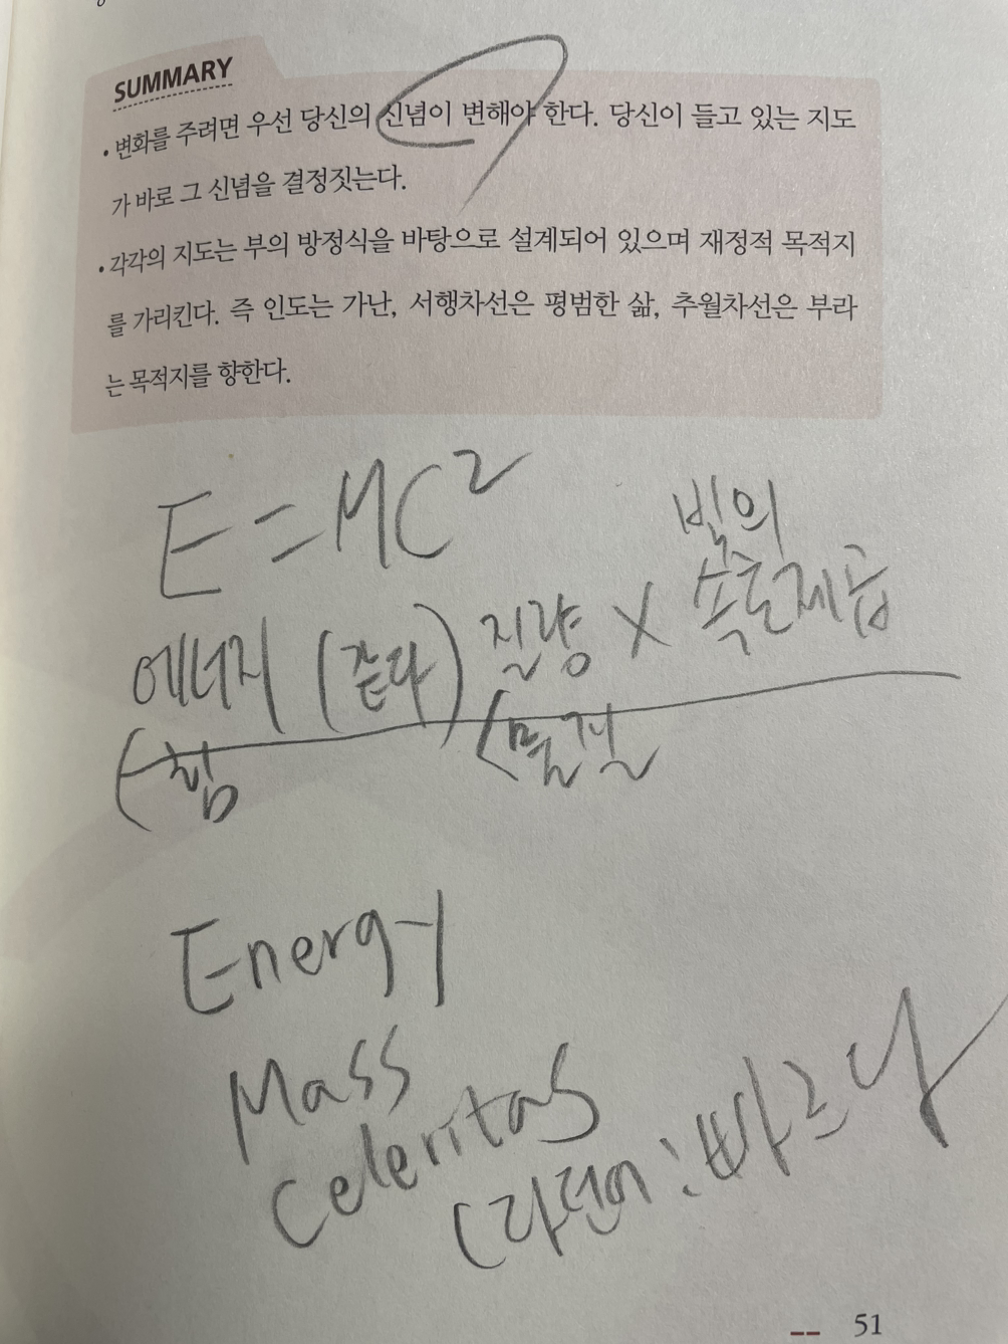 SUMMARY
• 변화를 주려면 우선 당신의 신념이 변해야 한다. 당신이 들고 있는 지도
가 바로 그 신념을 결정짓는다.
• 각각의 지도는 부의 방정식을 바탕으로 설계되어 있으며 재정적 목적지
를 가리킨다. 즉 인도는 가난, 서행차선은 평범한 삶, 추월차선은 부라
는 목적지를 향한다.
E=MC²
에너지 (같다) 질량 × 빛의 속도제곱
(힘 (물건
Energy
Mass
Celeritas
(라틴어:빠르다
51